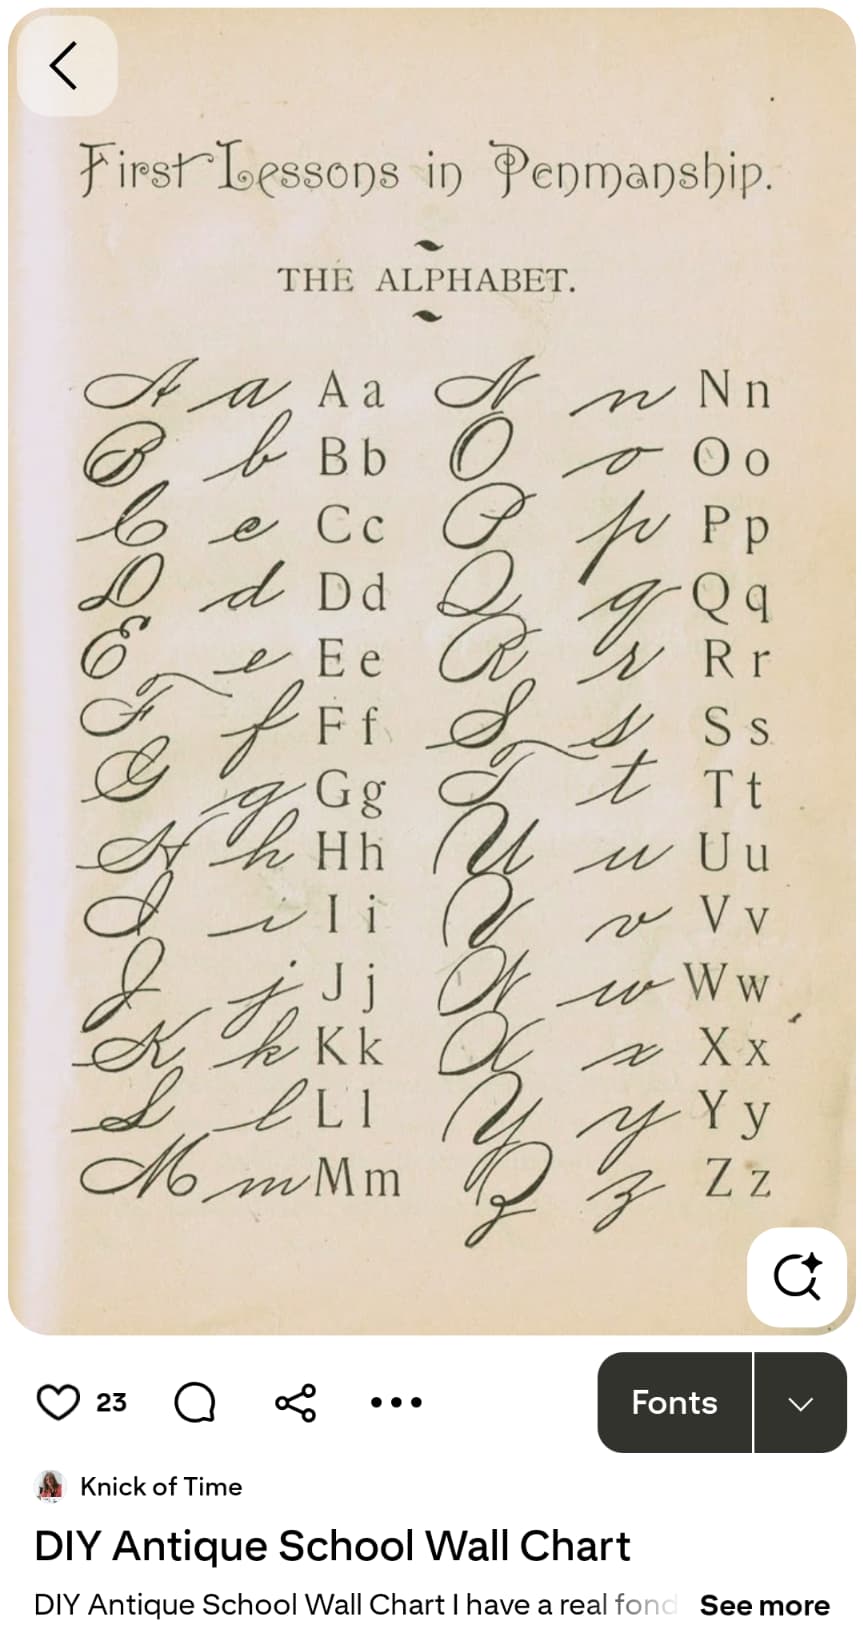 First Lessons in Penmanship.
THE ALPHABET.
A a A a N n N n
B b B b O o O o
C c C c P p P p
D d D d Q q Q q
E e E e R r R r
F f F f S s S s
G g G g T t T t
H h H h U u U u
I i I i V v V v
J j J j W w W w
K k K k X x X x
L l L l Y y Y y
M m M m Z z Z z
23
Fonts
Knick of Time
DIY Antique School Wall Chart
DIY Antique School Wall Chart I have a real fond See more